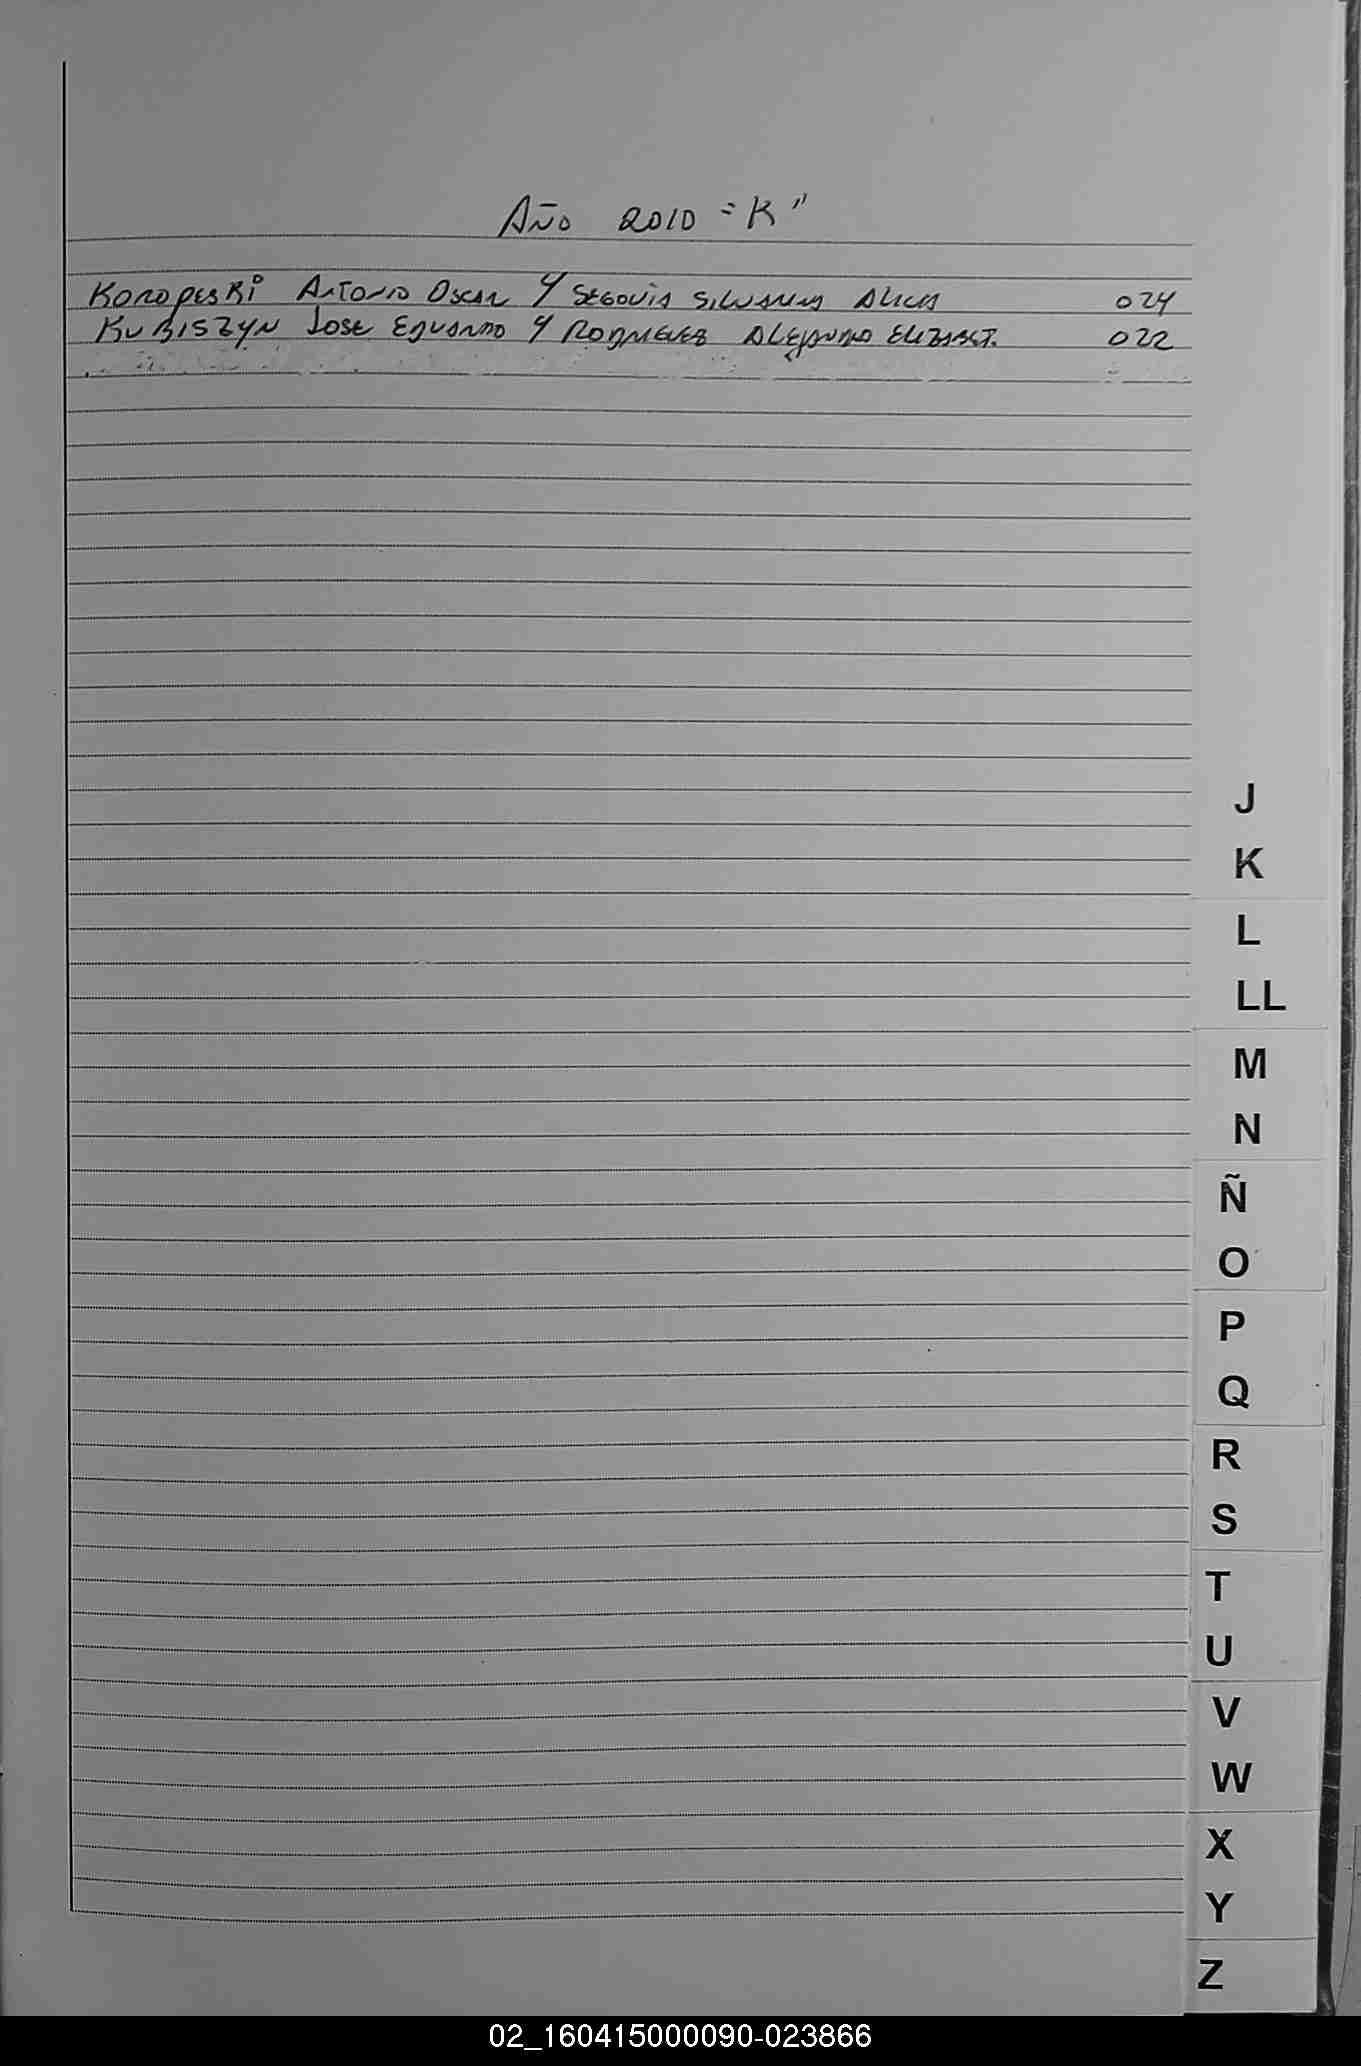 Año 2010 "K"
Koropeski Antonio Oscar Y Segovia Silvana Alicia 024
Kubiszyn Jose Eduardo Y Rodriguez Alejandra Elizabet. 022
J
K
L
LL
M
N
Ñ
O
P
Q
R
S
T
U
V
W
X
Y
Z
02_160415000090-023866